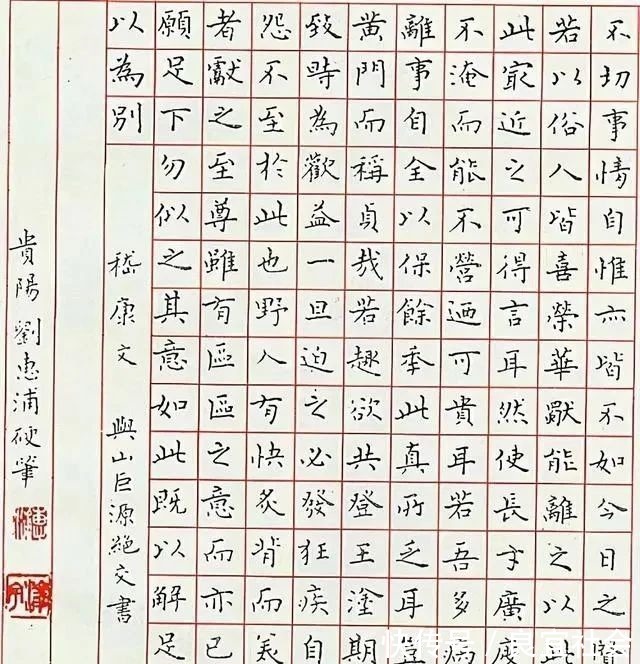 不切事情自惟亦皆不如今日之賢
若以俗人皆喜榮華獨能離之以此
此最近之可得言耳然使長才廣度
不淹而能不營迺可貴耳若吾多病
離事自全以保餘年此真所乏耳豈
黄門而稱貞哉若趣欲共登王塗期
致時為歡益一旦迫之必發狂疾自
怨不至於此也野人有快炙背而美
者獻之至尊雖有區區之意而亦已
願足下勿似之其意如此既以解足
以為別 嵇康文 與山巨源絕交書
貴陽劉惠浦硬筆
快传号